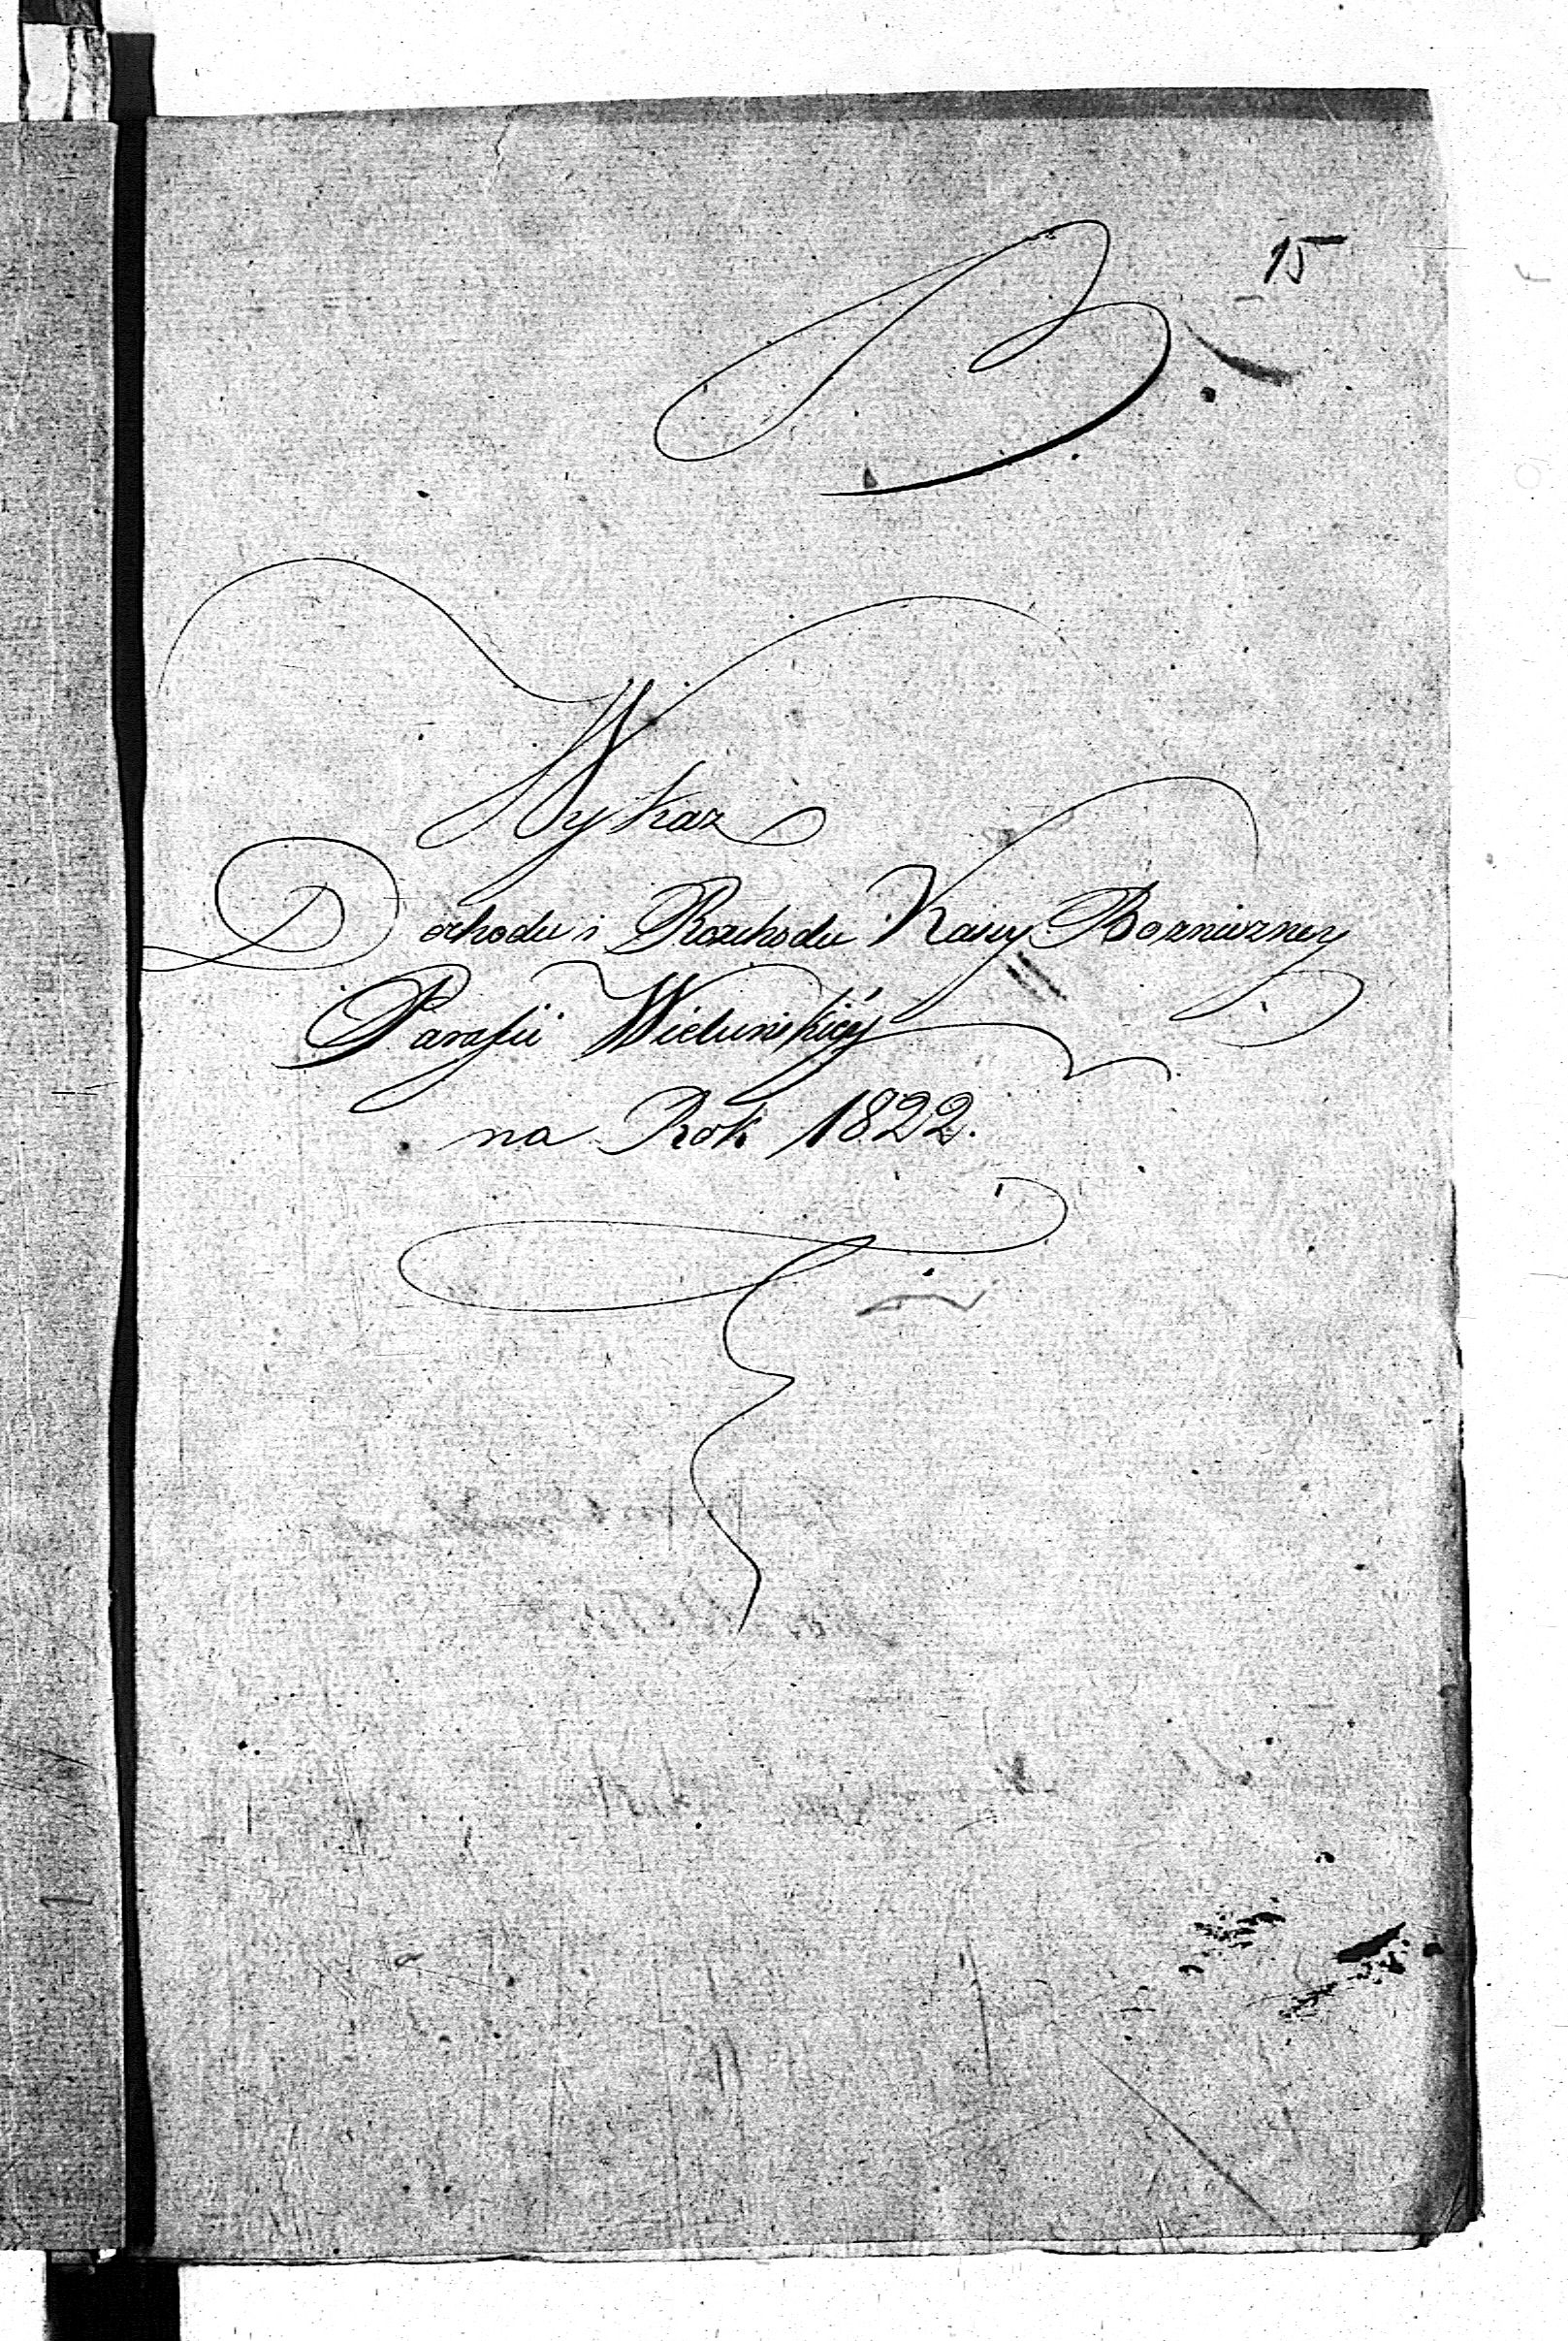 15
B.
Wykaz
Dochodu i Rozchodu Kassy Bozniczney
Parafii Wieluńskiéy
na Rok 1822.